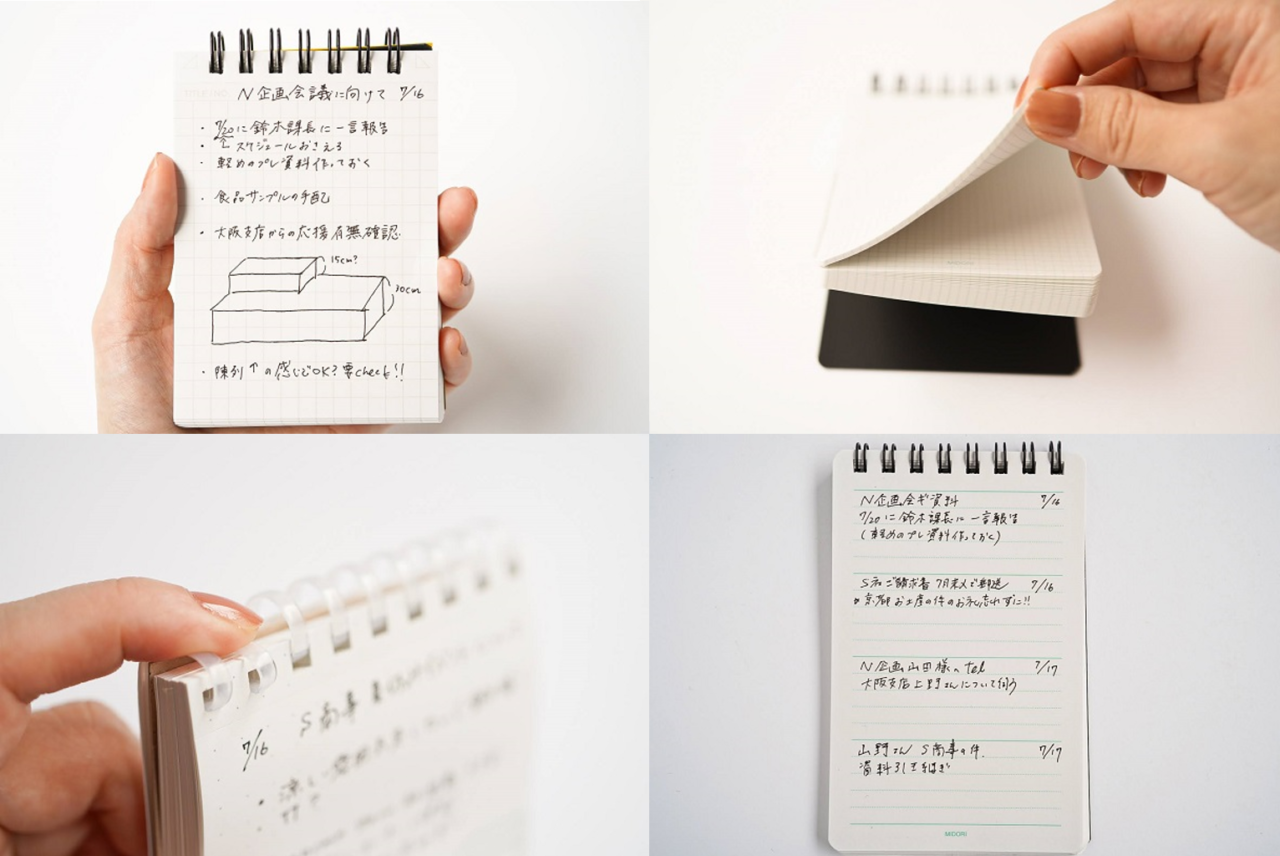 N企画会議に向けて 7/16
・7/20に鈴木課長に一言報告
↑スケジュールおさえる
・軽めのプレ資料作っておく
・食品サンプルの手配
・大阪支店からの応援有無確認
15cm?
30cm
・陳列↑の感じでOK?要check!!
7/16 S商事
N企画会ギ資料 7/16
7/20に鈴木課長に一言報告
(軽めのプレ資料作っておく)
S社ご請求書 7月末〆で郵送 7/16
京都お土産の件のお礼忘れずに!!
N企画山田様へtel 7/17
大阪支店上野さんについて伺う
山野さん S商事の件 7/17
資料引きつぎ
MIDORI